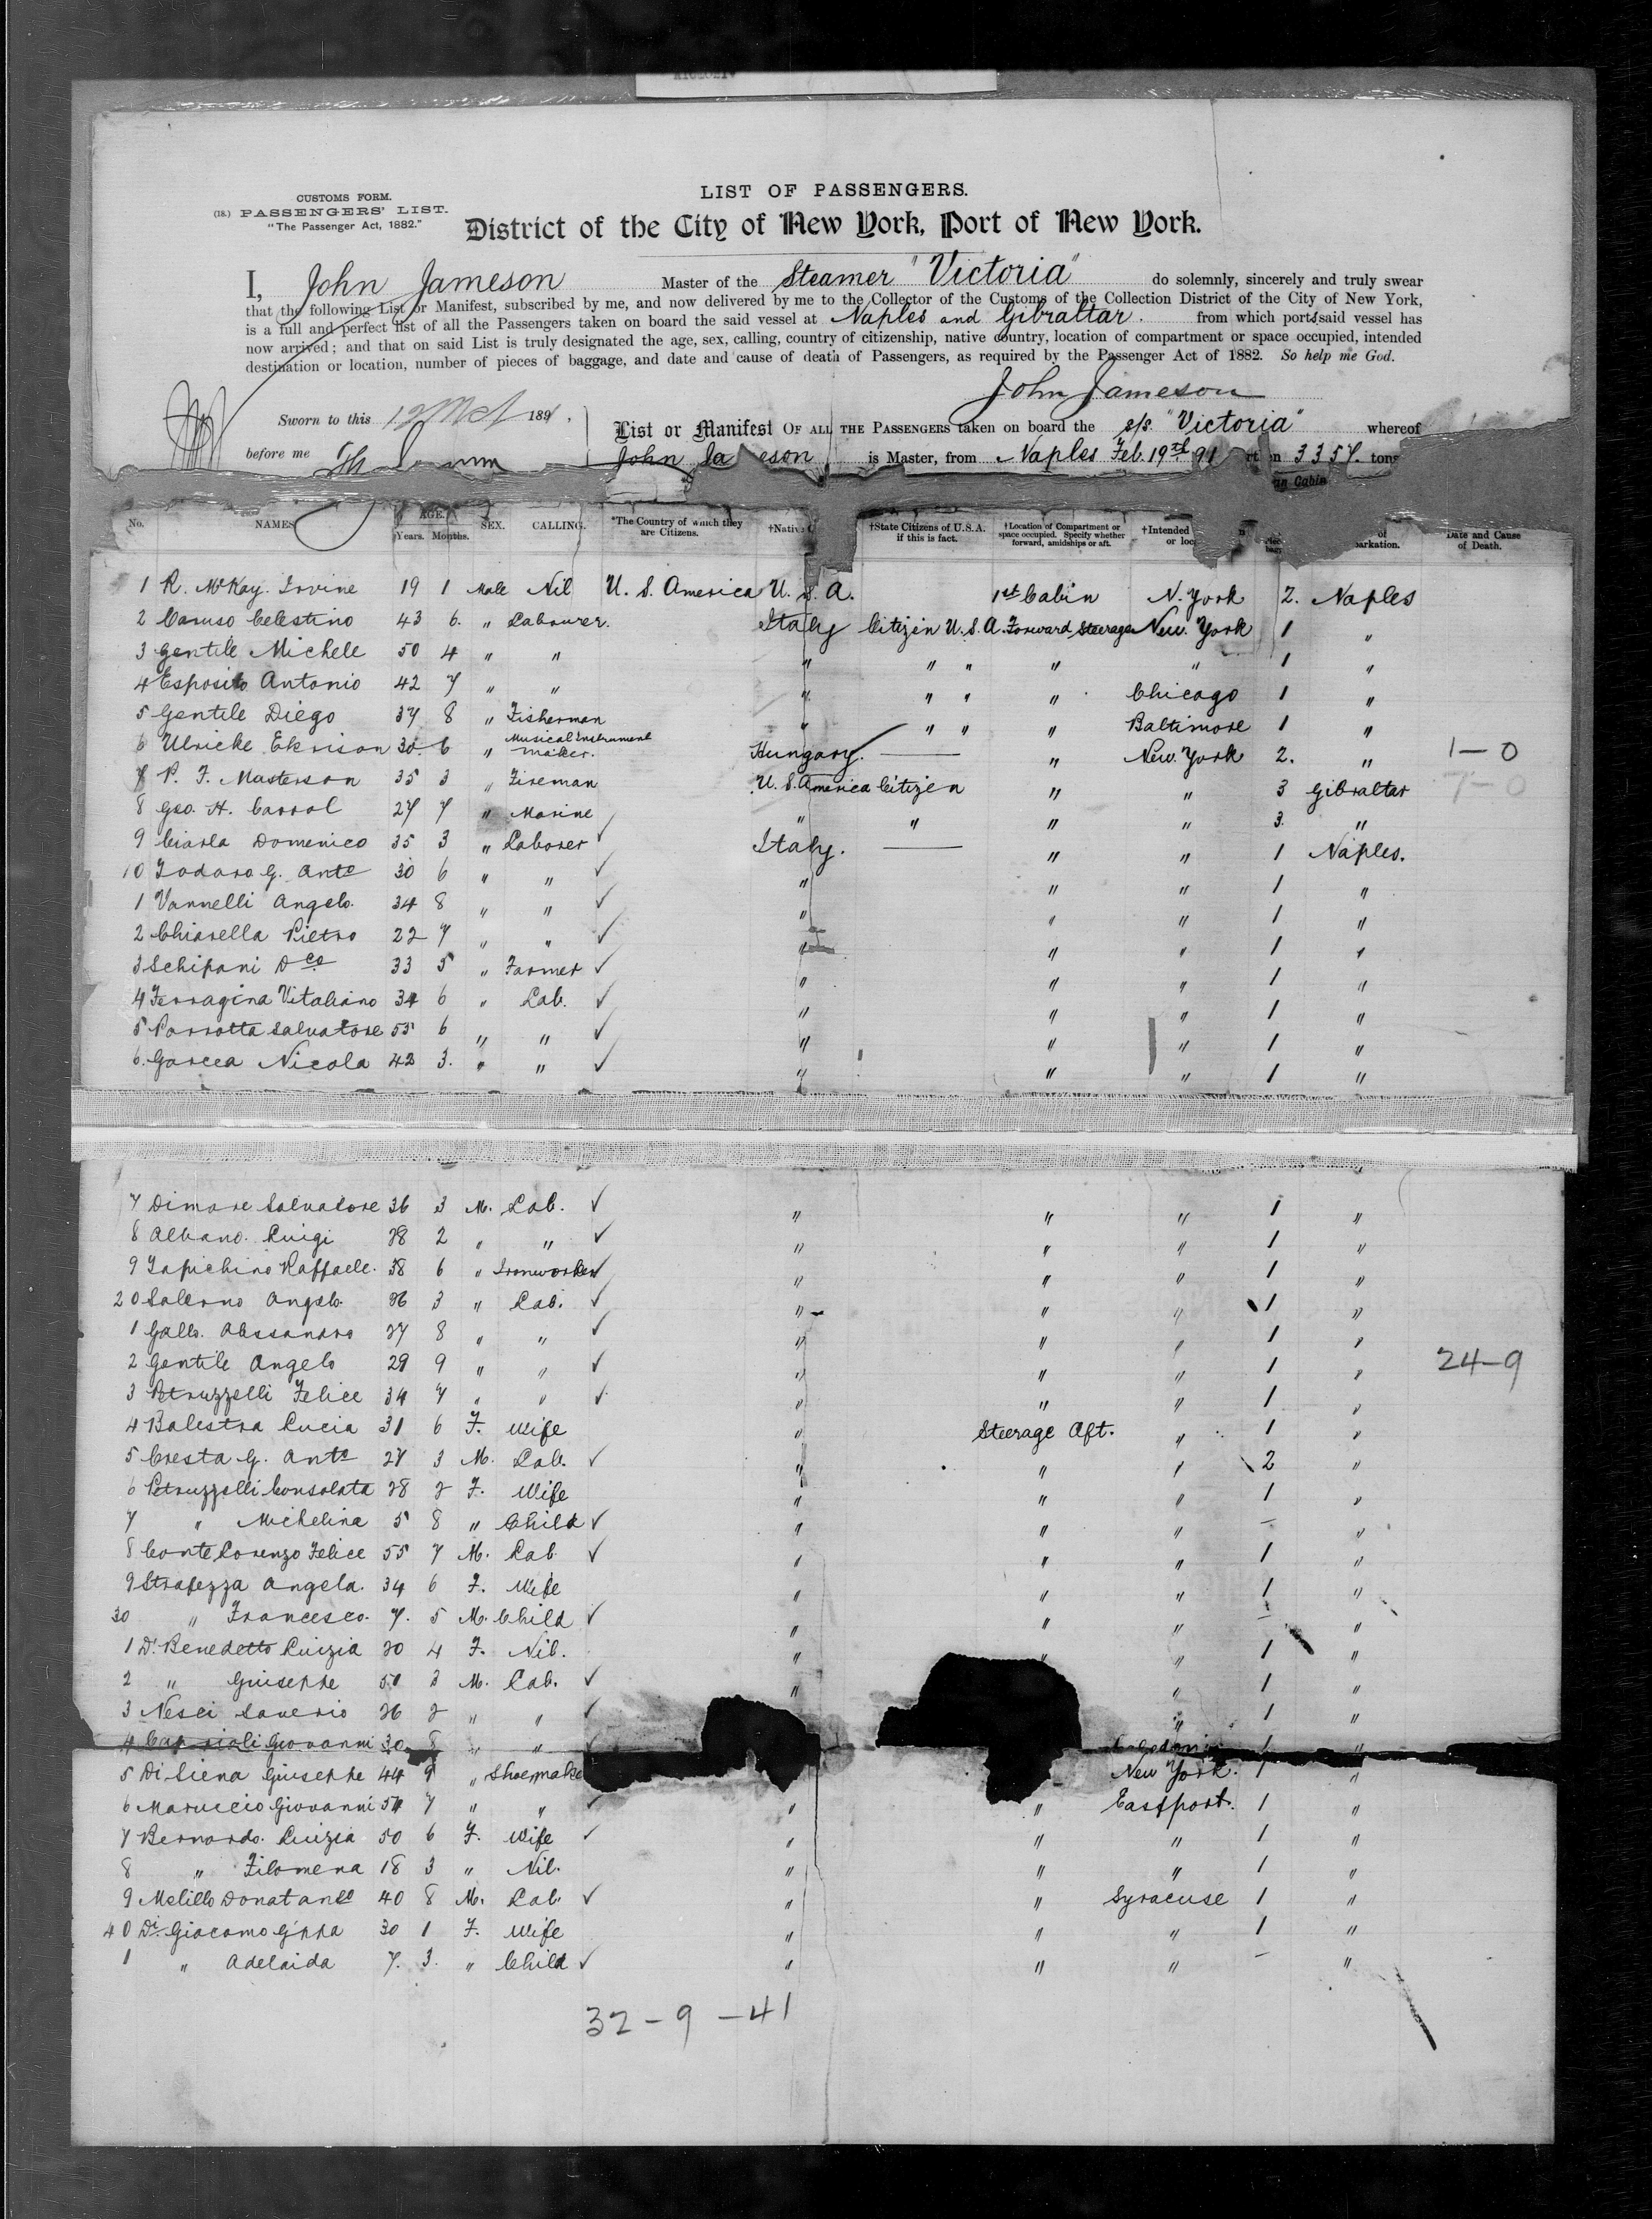 LIST OF PASSENGERS.
CUSTOMS FORM.
(18.) PASSENGERS' LIST.
"The Passenger Act, 1882."
District of the City of New York, Port of New York.
I, John Jameson Master of the Steamer "Victoria" do solemnly, sincerely and truly swear
that the following List or Manifest, subscribed by me, and now delivered by me to the Collector of the Customs of the Collection District of the City of New York,
is a full and perfect list of all the Passengers taken on board the said vessel at Naples and Gibraltar. from which ports said vessel has
now arrived; and that on said List is truly designated the age, sex, calling, country of citizenship, native country, location of compartment or space occupied, intended
destination or location, number of pieces of baggage, and date and cause of death of Passengers, as required by the Passenger Act of 1882. So help me God.
John Jameson
Sworn to this 12 189
List or Manifest OF ALL THE PASSENGERS taken on board the s/s. "Victoria" whereof
before me
John is Master, from Naples Feb. 19th 91 3357. tons
Cabin
No. NAMES AGE. Years. Months. SEX. CALLING. *The Country of which they are Citizens. †State Citizens of U.S.A. if this is fact. †Location of Compartment or space occupied. Specify whether forward, amidships or aft. †Intended of Date and Cause of Death.
1 R. McKay. Irvine 19 1 Male Nil U. S. America U. S. A. 1st Cabin N. York 2. Naples
2 Caruso Celestino 43 6. " Labourer. Italy Citizen U. S. A. Forward Steerage New. York 1 "
3 Gentile Michele 50 4 " " " " " " " 1 "
4 Esposito Antonio 42 7 " " " " " " Chicago 1 "
5 Gentile Diego 37 8 " Fisherman " " " " Baltimore 1 "
6 Ulricke Ekrison 30 6 " Musical Instrument maker. Hungary. — " New. York 2. " 1—0
7 P. F. Masterson 35 3 " Fireman U. S. America Citizen " " 3 Gibraltar 7—0
8 Geo. H. Carrol 27 7 " Marine " " " " 3. "
9 Ciarla Domenico 35 3 " Laborer ✓ Italy. — " " 1 Naples.
10 Todaro G. Anto 30 6 " " ✓ " " " 1 "
1 Vannelli Angelo. 34 8 " " ✓ " " " 1 "
2 Chiarella Pietro 22 7 " " ✓ " " " 1 "
3 Schipani Dco 33 5 " Farmer ✓ " " " 1 "
4 Ferragina Vitaliano 34 6 " Lab. ✓ " " " 1 "
5 Parrotta Salvatore 55 6 " " ✓ " " " 1 "
6. Garcea Nicola 42 3. " " ✓ " " " 1 "
7 Dimare Salvatore 36 3 M. Lab. ✓ " " " 1 "
8 Albano. Luigi 28 2 " " ✓ " " " 1 "
9 Iapichino Raffaele. 38 6 " Ironworker ✓ " " " 1 "
20 Salerno Angelo. 26 3 " Lab. ✓ " " " 1 "
1 Gallo. Alessandro 27 8 " " ✓ " " " 1 "
2 Gentile Angelo 29 9 " " ✓ " " " 1 " 24—9
3 Petruzzelli Felice 34 7 " " ✓ " " " 1 "
4 Balestra Lucia 31 6 F. Wife " Steerage Aft. " 1 "
5 Cresta G. Anto 27 3 M. Lab. ✓ " " " 2 "
6 Petruzzelli Consolata 28 2 F. Wife " " " 1 "
7 " Michelina 5 8 " Child ✓ " " " — "
8 Conte Lorenzo Felice 55 7 M. Lab ✓ " " " 1 "
9 Strapezza Angela. 34 6 F. Wife " " " 1 "
30 " Francesco. 7. 5 M. Child ✓ " " " — "
1 Di Benedetto Luizia 20 4 F. Nil. " " " 1 "
2 " Giuseppe 50 3 M. Lab. ✓ " " 1 "
3 Nesci Saverio 26 2 " " ✓ " 1 "
4 Giovanni 30 8 " " ✓ 1 "
5 Di Siena Giuseppe 44 9 " Shoemaker New York. 1 "
6 Maruccio Giovanni 54 7 " " ✓ " " Eastport. 1 "
7 Bernardo. Luizia 50 6 F. Wife ✓ " " " 1 "
8 " Filomena 18 3 " Nil. " " " 1 "
9 Melillo Donatanto 40 8 M. Lab. ✓ " " Syracuse 1 "
40 Di Giacomo Gppa 30 1 F. Wife " " " 1 "
1 " Adelaida 7. 3. " Child ✓ " " " — "
32 — 9 — 41